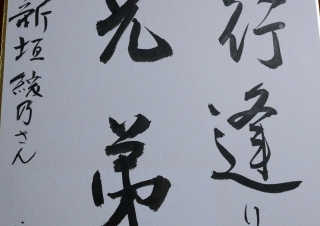 行逢り
兄弟
新垣綾乃さん